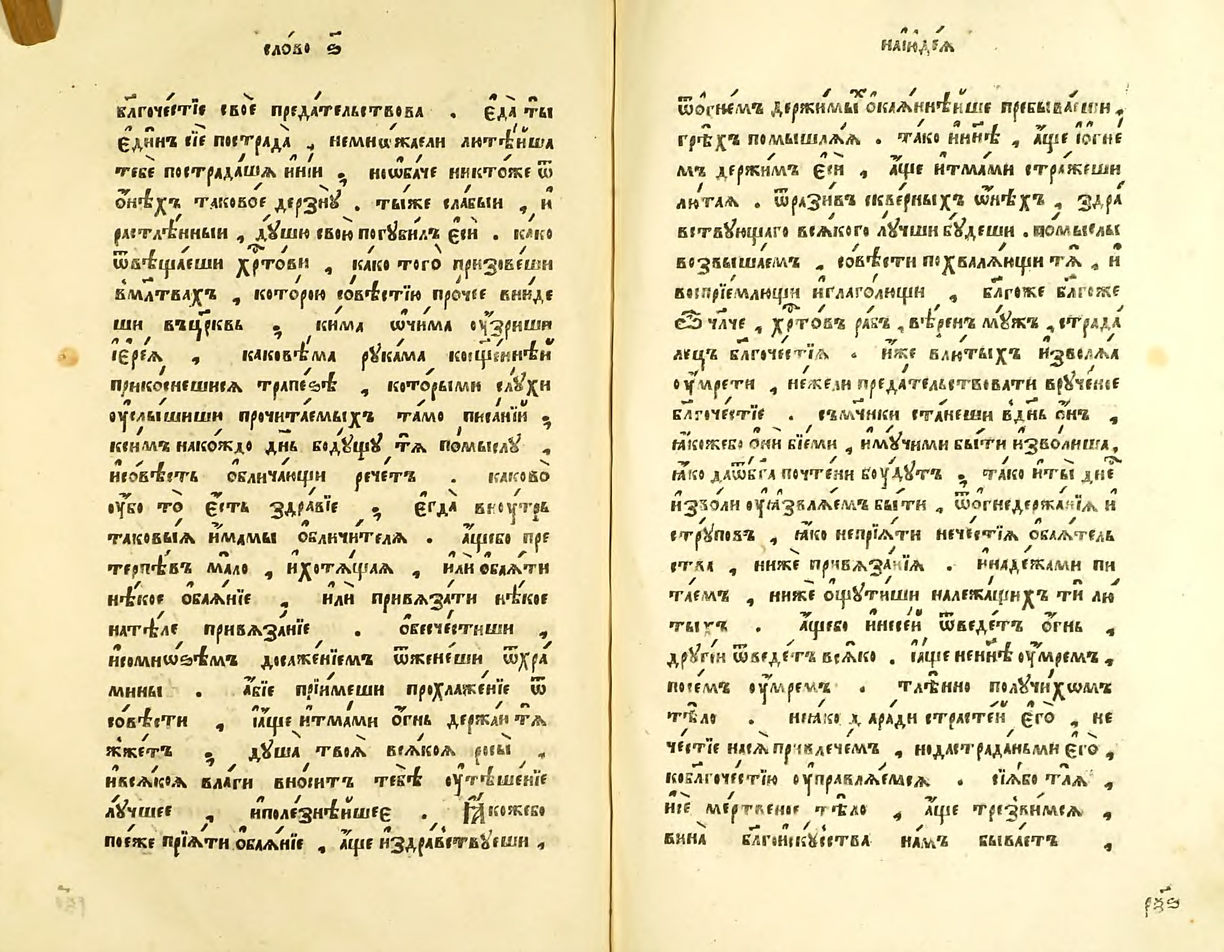 слово ѕ҃
бл҃гоче́стїе своѐ преда́тельствова . є҆да̀ ты̀
є҆ди́нъ сїѐ пострада̀ , немно́жаели лютѣ́йша
тебѐ пострада́шѧ и҆ні́и ; но ѡ҆ба́че никто́же ѿ
о҆нѣ́хъ таково́е дерзнꙋ̀ . ты́же сла́быи , и҆
растлѣ́нныи , дꙋ́шю свою̀ погꙋби́лъ є҆сѝ . ка́ко
ѿвѣща́еши хр҃то́ви , ка́ко того̀ призове́ши
вмл҃твахъ , кото́рою со́вѣстїю про́чее вни́де
ши въцр҃квь ; ки́ма ѻ҆чи́ма оу҆́зриши
і҆ере́ѧ , каковѣ́ма рꙋка́ма ко сщ҃е́ннѣй
прикоснешисѧ трапе́ѕѣ , кото́рыми слꙋ́хи
оу҆слы́шиши прочита́емыхъ та́мо писа́нїй ;
ксим́ъ нако́ждо дн҃ь бодꙋ́щꙋ тѧ̀ по́мыслꙋ ,
и҆со́вѣсть ѡ҆блича́ющи рече́тъ . каково̀
оу҆́бо то̀ є҆́сть здра́вїе ; є҆гда̀ внꙋ́трь
таковы́ѧ и҆́мамы ѡ҆бличи́телѧ . а҆́щебо пре
терпѣ́въ ма́ло , и҆хотѧ́щаѧ , и҆лѝ ѡ҆баѧ́ти
нѣ́кое ѡ҆баѧ́нїе , и҆лѝ привѧза́ти нѣ́кое
натѣ́ле привѧза́нїе . ѡ҆безче́стиши ,
и҆сомно́ѕѣмъ досажде́нїемъ ѿжене́ши ѿхра́
мины . а҆́бїе прїи́меши прохлажде́нїе ѿ
со́вѣсти , і҆а҆́ще и҆тма́ми о҆́гнь держа́и тѧ̀
жже́тъ ; дꙋша̀ твоѧ̀ всѧ́коѧ росы̀ ,
и҆всѧ́коѧ вла́ги вно́ситъ тебѣ̀ оу҆тѣше́нїе
лꙋ́чшее , и҆поле́знѣйшее . Ꙗ҆́кожебо
по́сже прїѧ́ти ѡ҆баѧ́нїе , а҆́ще и҆здра́вствꙋеши ,
наи҆ꙋде́ѧ
ѿо҆гне́мъ держи́мых ѡ҆каѧ́ннѣйше пребыва́еши ,
грѣ́хъ помышлѧ́ѧ . та́ко нн҃ѣ , а҆́ще і҆о҆гне́
мъ держи́мъ є҆сѝ , а҆́ще и҆тма́ми стра́жеши
лю́таѧ . ѿрази́въ скве́рныхъ ѻ҆нѣ́хъ , здра́
вствꙋющаго всѧ́кого лꙋ́чши бꙋ́деши . по́мыслы
возвыша́емъ , со́вѣсти похвалѧ́ющи тѧ̀ , и҆
воспрїе́млющи и҆глаго́лющи , бл҃го́же бл҃го́же
ѽ чл҃че , хр҃то́въ ра́бъ , вѣ́ренъ мꙋ́жъ , страда́
лецъ бл҃гоче́стїѧ . и҆́же влю́тыхъ и҆зво́лѧѧ
оу҆мре́ти , не́жели преда́тельствовати врꙋче́ное
бл҃гоче́стїе . съмч҃ники ста́неши вдн҃ь о҆́нъ ,
ꙗ҆́кожебо о҆нѝ бїе́ми , и҆мꙋ́чими бы́ти и҆зво́лиша ,
ꙗ҆́ко даѿб҃га почте́ни бꙋ́дꙋтъ ; та́ко и҆ты̀ дне́
и҆зво́ли оу҆ѧзвлѧ́емъ бы́ти , ѿо҆гнедержа́нїѧ и҆
стрꙋ́повъ , ꙗ҆́ко непрїѧ́ти нече́стїѧ ѡ҆баѧ́тель
ства , нижѐ привѧза́нїѧ . и҆наде́жами пи
та́емъ , нижѐ ѡ҆щꙋти́ши належа́щихъ тѝ лю́
тыхъ . а҆́щебо и҆нисе́й ѿведе́тъ о҆́гнь ,
дрꙋгі́и ѿведе́тъ всѧ́ко . і҆а҆́ще не нн҃ѣ оу҆́мремъ ,
посе́мъ оу҆́мремъ . тлѣ́нно полꙋчи́хомъ
тѣ́ло . ради страсте́й є҆гѡ̀ , не
че́стїе насѧ̀ привлече́мъ , страда́ньми є҆гѡ̀ ,
коблгоче́стїю оу҆правлѧ́емсѧ . сїѧ́бо тлѧ̀ ,
ме́ртвеное тѣ́ло , а҆́ще трезви́мсѧ ,
вина̀ бл҃гоискꙋ́ства на́мъ быва́етъ ,
рѯѕ